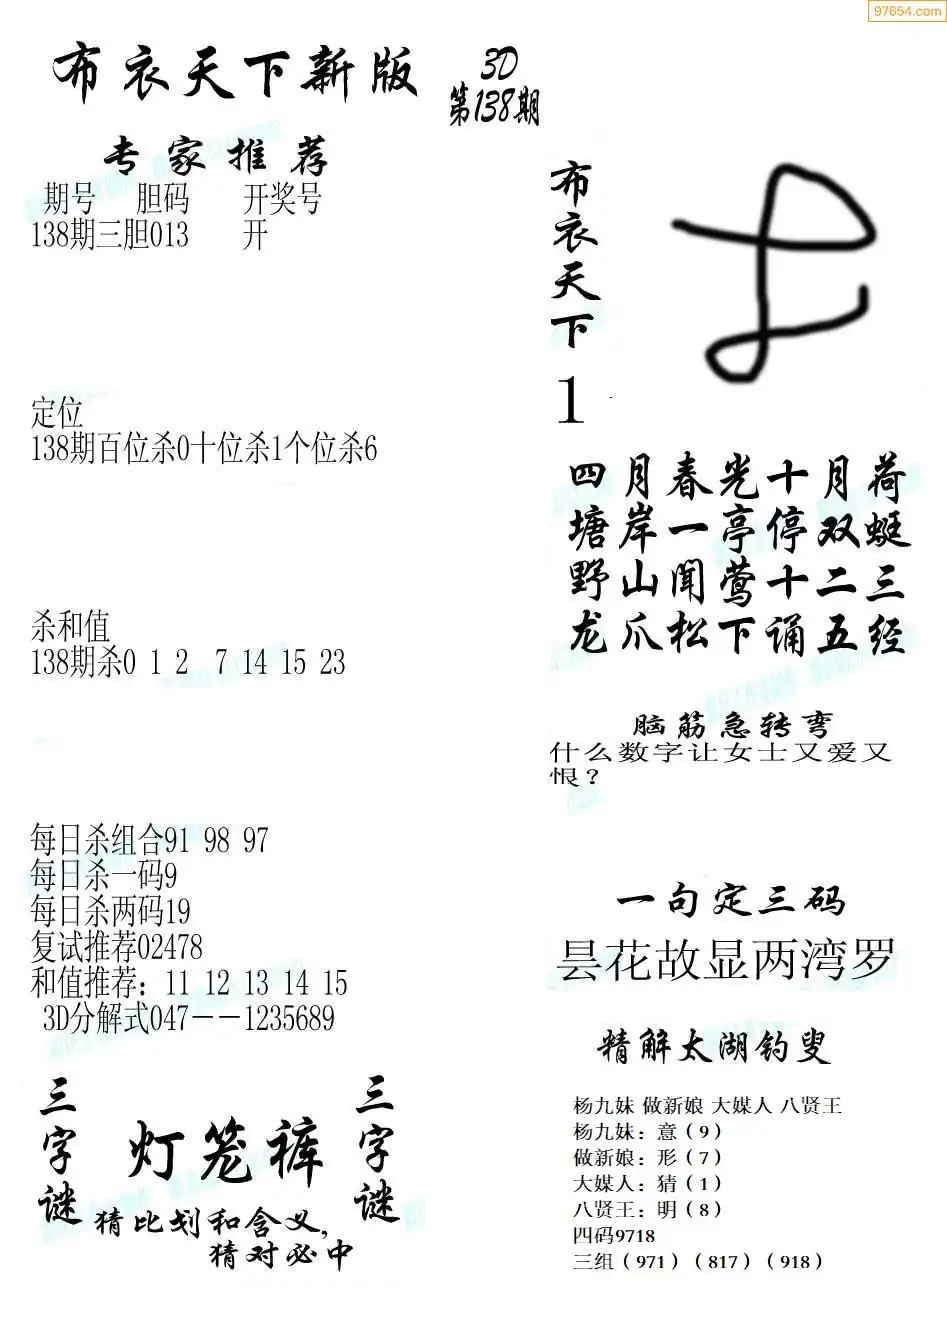 97654.com
布衣天下新版
3D
第138期
专家推荐
期号 胆码 开奖号
138期三胆013 开
定位
138期百位杀0十位杀1个位杀6
杀和值
138期杀0 1 2 7 14 15 23
每日杀组合91 98 97
每日杀一码9
每日杀两码19
复试推荐02478
和值推荐：11 12 13 14 15
3D分解式047－－1235689
三字谜
灯笼裤
三字谜
猜比划和含义，
猜对必中
布衣天下
1
四月春光十月荷
塘岸一亭停双蜓
野山闻莺十二三
龙爪松下诵五经
脑筋急转弯
什么数字让女士又爱又
恨？
一句定三码
昙花故显两湾罗
精解太湖钓叟
杨九妹 做新娘 大媒人 八贤王
杨九妹：意（9）
做新娘：形（7）
大媒人：猜（1）
八贤王：明（8）
四码9718
三组（971）（817）（918）